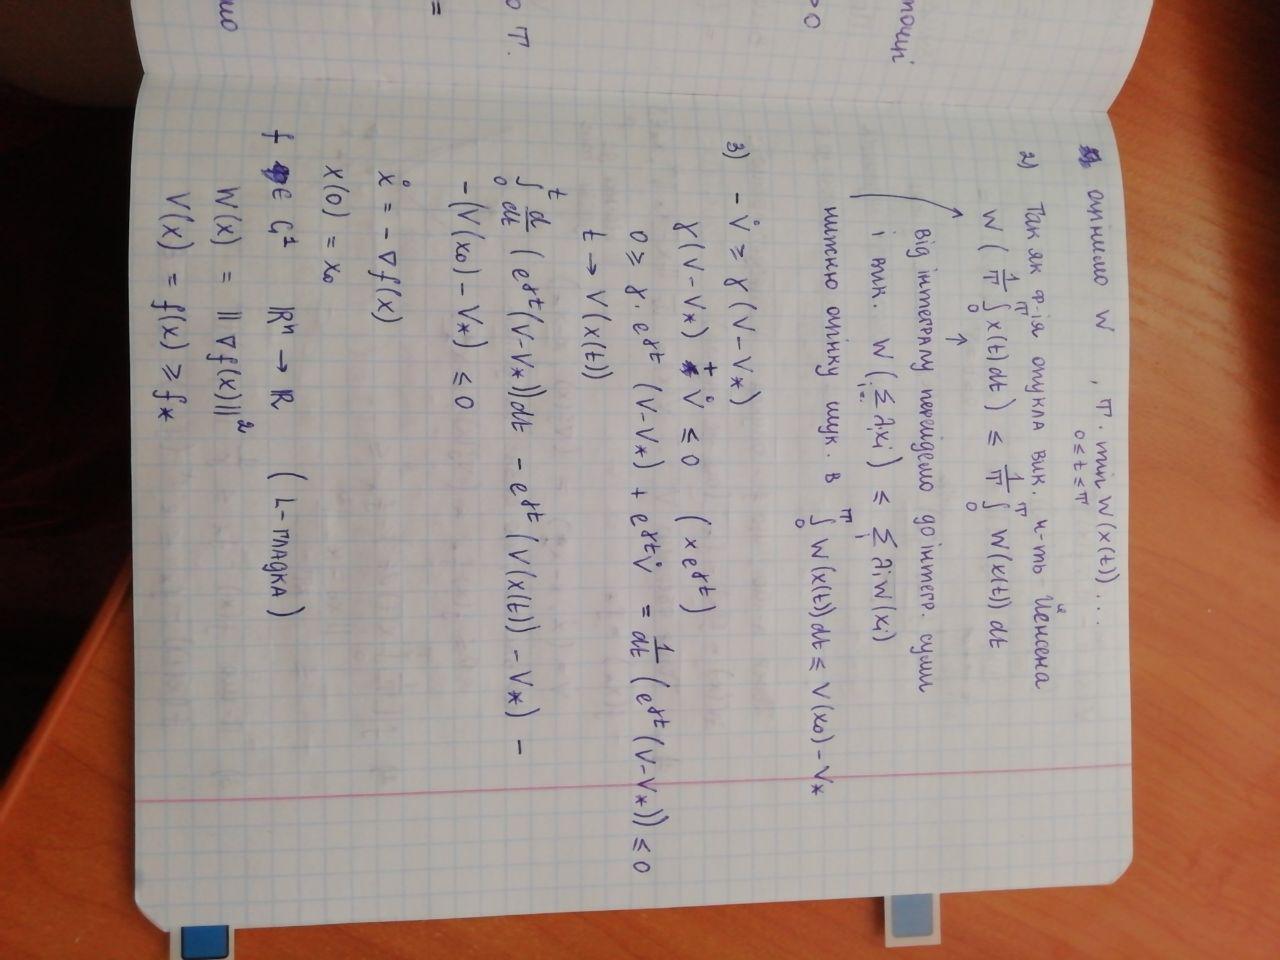 оцінимо W , T · min W(x(t)) ...
0 ≤ t ≤ T
2) Так як ф-ія опукла вик. н-ть Йєнсена
W ( 1/T ∫₀ᵀ x(t) dt ) ≤ 1/T ∫₀ᵀ W(x(t)) dt
від інтегралу перейдемо до інтегр. суми
і вик. W ( Σ λᵢxᵢ ) ≤ Σ λᵢ W(xᵢ)
нижню оцінку шук. в ∫₀ᵀ W(x(t)) dt ≤ V(x₀) - V*
3) - V̇ ≥ γ (V - V*)
γ(V - V*) + V̇ ≤ 0 ( × e^γt )
0 ≥ γ · e^γt (V - V*) + e^γt V̇ = 1/dt (e^γt (V - V*)) ≤ 0
t → V(x(t))
∫₀ᵗ d/dt (e^γt (V - V*)) dt - e^γt (V(x(t)) - V*) -
- (V(x₀) - V*) ≤ 0
ẋ = - ∇f(x)
x(0) = x₀
f ∈ C¹ ℝⁿ → ℝ ( L-гладка )
W(x) = || ∇f(x) ||²
V(x) = f(x) ≥ f*
точці
> 0
о T.
=
мо